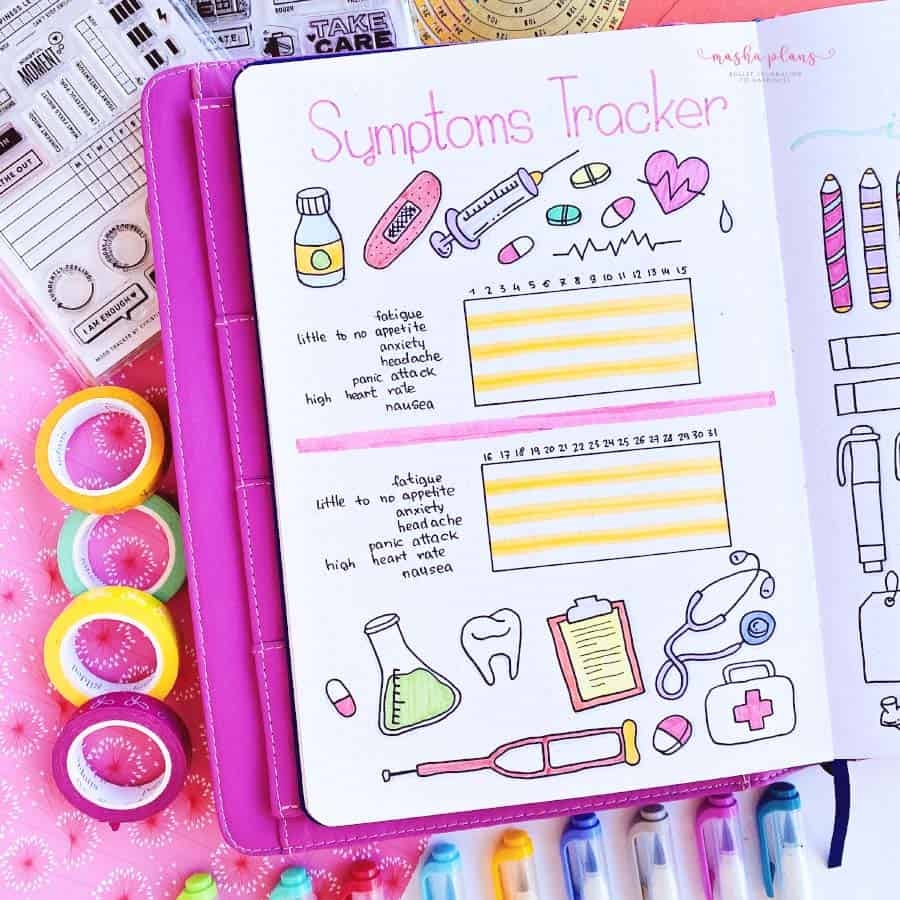 TAKE
CARE
MOMENT
I AM ENOUGH
M T W T F S S
masha plans
BULLET JOURNALING
TO HAPPINESS
Symptoms Tracker
1 2 3 4 5 6 7 8 9 10 11 12 13 14 15
fatigue
little to no appetite
anxiety
headache
panic attack
high heart rate
nausea
16 17 18 19 20 21 22 23 24 25 26 27 28 29 30 31
fatigue
little to no appetite
anxiety
headache
panic attack
high heart rate
nausea